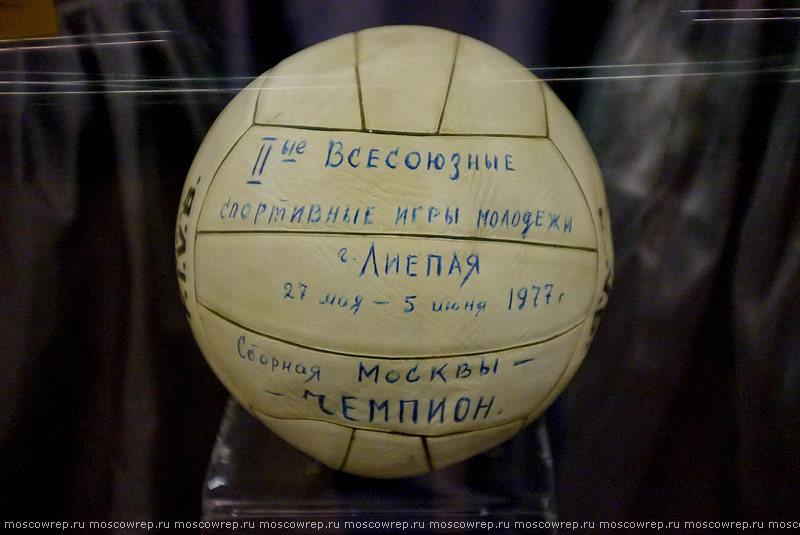 F.I.V.B.
IIые ВСЕСОЮЗНЫЕ
СПОРТИВНЫЕ ИГРЫ МОЛОДЕЖИ
г. ЛИЕПАЯ
27 мая - 5 июня 1977 г
Сборная МОСКВЫ -
- ЧЕМПИОН.
moscowrep.ru moscowrep.ru moscowrep.ru moscowrep.ru moscowrep.ru moscowrep.ru moscowrep.ru moscowrep.ru moscowrep.ru mosco